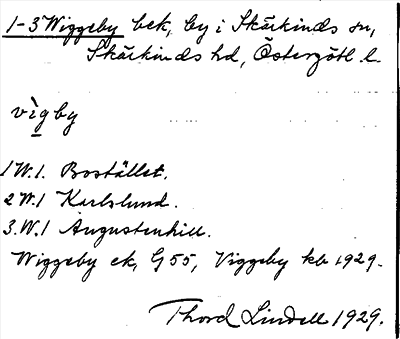 1-3 Wiggeby bek, by i Skärkinds sn,
Skärkinds hd, Östergötl l.
vìgby
1 W.1. Bostället.
2 W.1 Karlslund.
3. W.1 Augustenhill.
Wiggeby ek, G 55, Viggeby kb 1929.
Thord Lindell 1929.